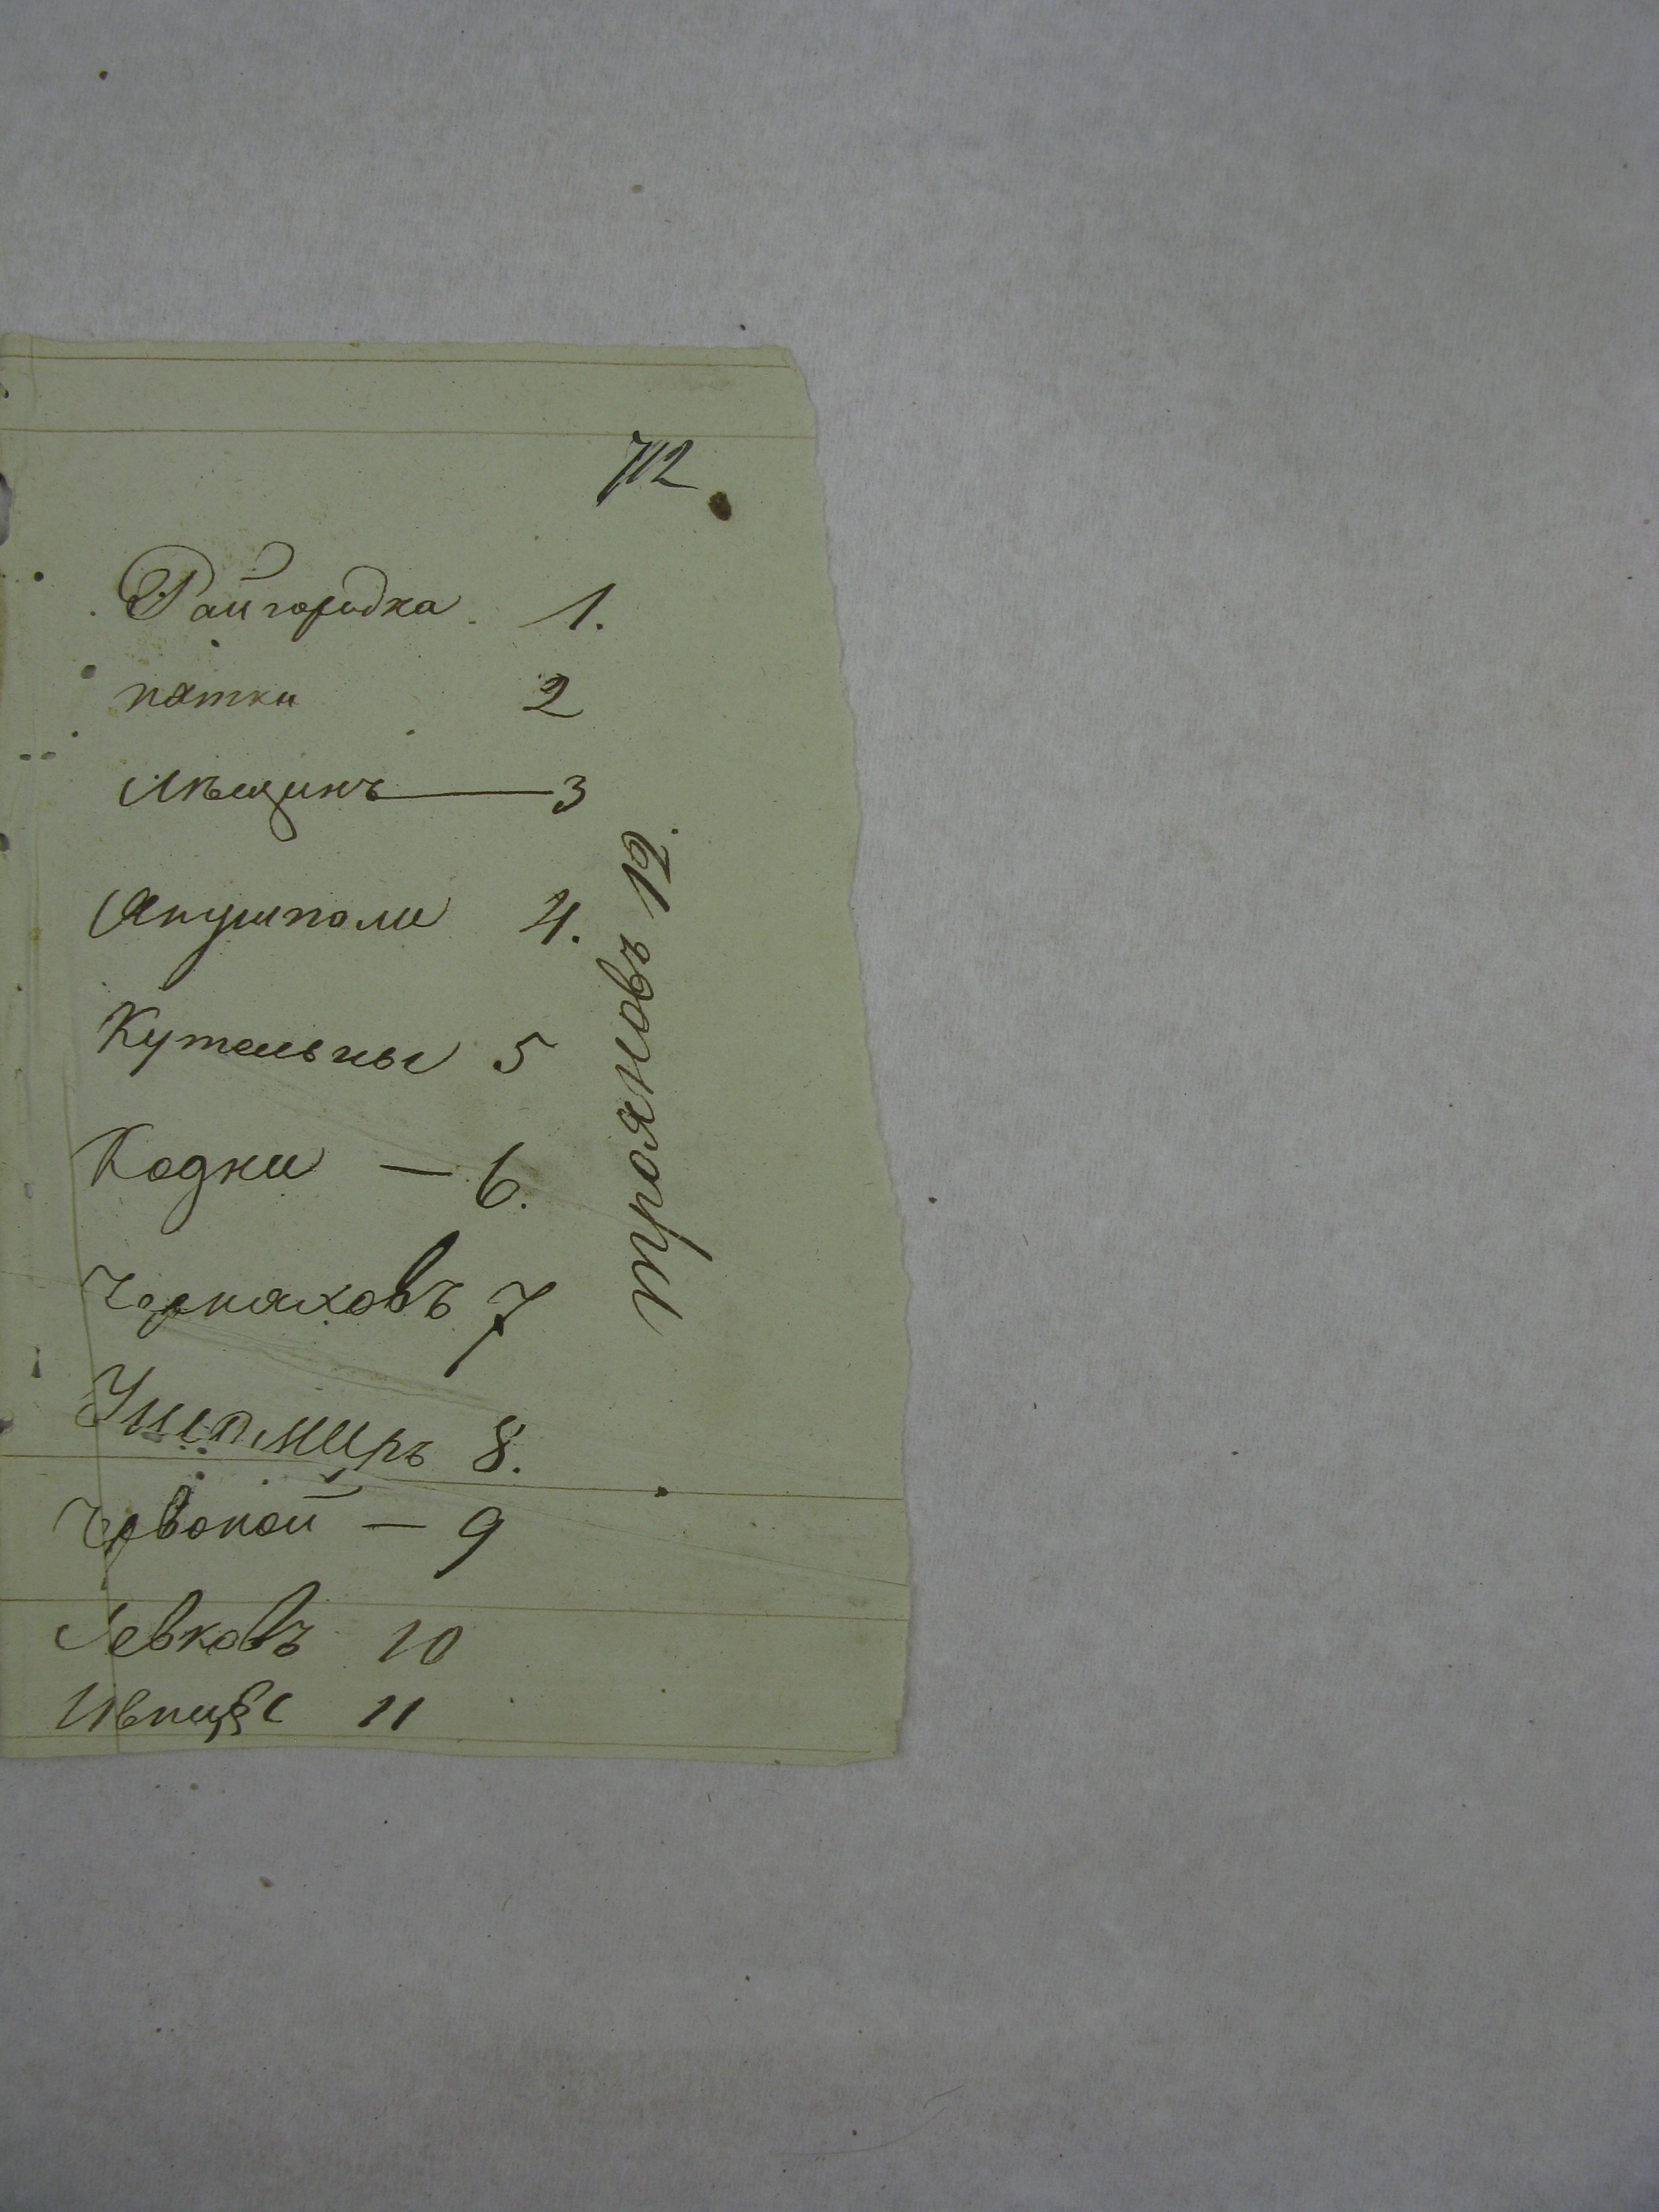 712
Райгородка 1.
пятки 2
Лѣщинъ — 3
Янушполи 4.
Кутельны 5
Кодни — 6.
Черняховъ 7
Ушомиръ 8.
Червоной — 9
Левковъ 10
Ивницы 11
трояновъ 12.